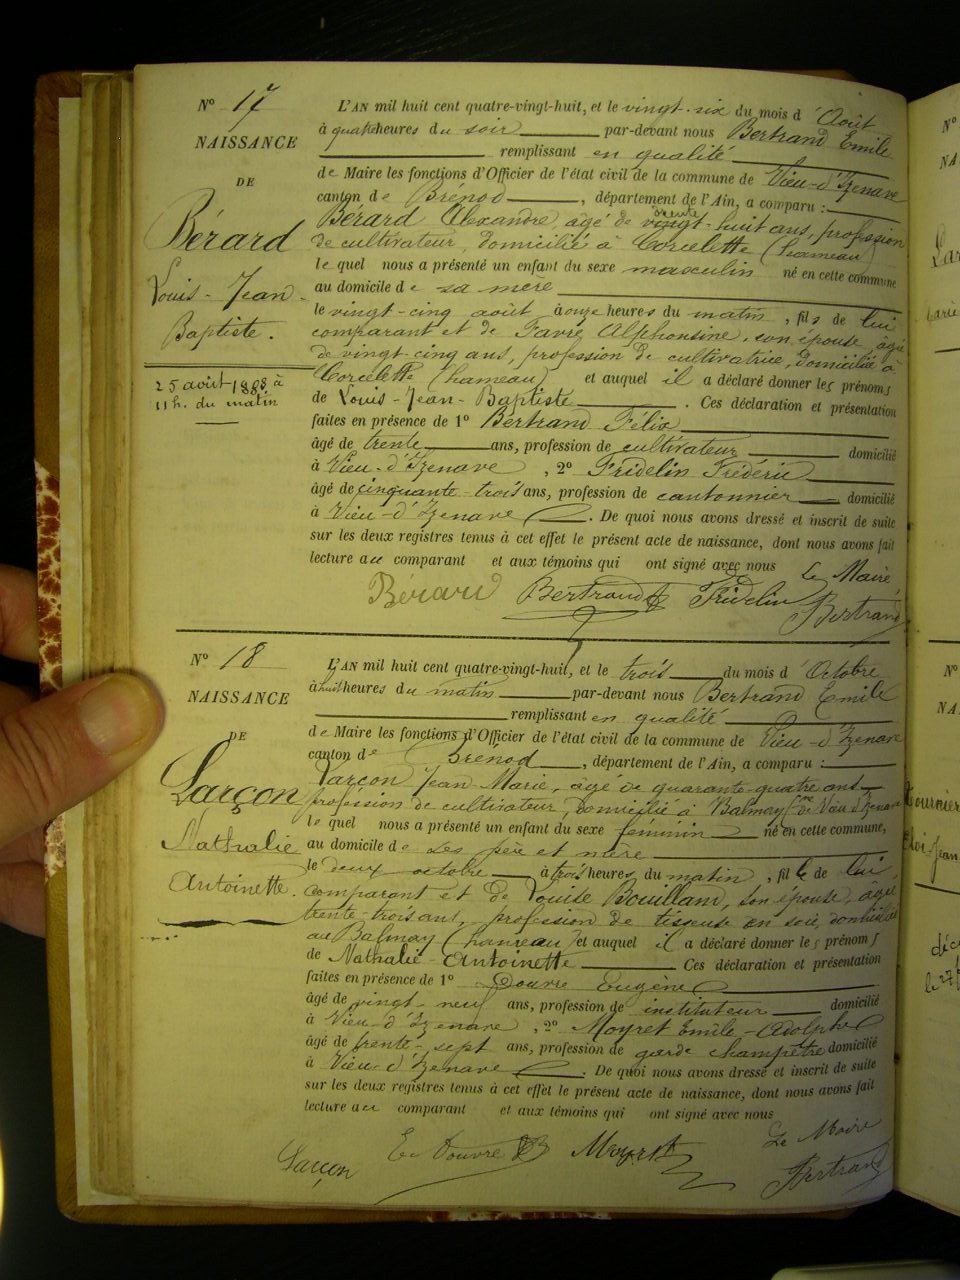 N° 17
NAISSANCE
DE
Bérard
Louis-Jean-
Baptiste.
25 août 1888 à
11 h. du matin
L'AN mil huit cent quatre-vingt-huit, et le vingt-six du mois d'Août
à quatre heures du soir par-devant nous Bertrand Emile
remplissant en qualité
de Maire les fonctions d'Officier de l'état civil de la commune de Vieu-d'Izenave
canton de Brénod, département de l'Ain, a comparu :
Bérard Alexandre, âgé de trente vingt-huit ans, profession
de cultivateur, domicilié à Corcelette (hameau)
lequel nous a présenté un enfant du sexe masculin né en cette commune
au domicile de sa mère
le vingt-cinq août à onze heures du matin, fils de lui
comparant et de Favre Alphonsine, son épouse, âgée
de vingt-cinq ans, profession de cultivatrice, domiciliée à
Corcelette (hameau) et auquel il a déclaré donner les prénoms
de Louis-Jean-Baptiste. Ces déclaration et présentation
faites en présence de 1° Bertrand Félix
âgé de trente ans, profession de cultivateur domicilié
à Vieu-d'Izenave, 2° Fridelin Frédéric
âgé de cinquante-trois ans, profession de cantonnier domicilié
à Vieu-d'Izenave. De quoi nous avons dressé et inscrit de suite
sur les deux registres tenus à cet effet le présent acte de naissance, dont nous avons fait
lecture au comparant et aux témoins qui ont signé avec nous Le Maire
Bérard Bertrand Fridelin Bertrand
N° 18
NAISSANCE
DE
Larçon
Nathalie
Antoinette.
L'AN mil huit cent quatre-vingt-huit, et le trois du mois d'Octobre
à huit heures du matin par-devant nous Bertrand Emile
remplissant en qualité
de Maire les fonctions d'Officier de l'état civil de la commune de Vieu-d'Izenave
canton de Brénod, département de l'Ain, a comparu :
Larçon Jean Marie, âgé de quarante-quatre ans
profession de cultivateur, domicilié à Balmay (cne de Vieu d'Izenave
lequel nous a présenté un enfant du sexe féminin né en cette commune,
au domicile de ses père et mère
le deux octobre à trois heures du matin, fille de lui
comparant et de Louise Bouilland, son épouse, âgée
trente-trois ans, profession de tisseuse en soie, domiciliée
au Balmay (hameau) et auquel il a déclaré donner les prénoms
de Nathalie-Antoinette Ces déclaration et présentation
faites en présence de 1° Douvre Eugène
âgé de vingt-neuf ans, profession de instituteur domicilié
à Vieu-d'Izenave, 2° Moyret Emile-Adolphe
âgé de trente-sept ans, profession de garde champêtre domicilié
à Vieu-d'Izenave. De quoi nous avons dressé et inscrit de suite
sur les deux registres tenus à cet effet le présent acte de naissance, dont nous avons fait
lecture au comparant et aux témoins qui ont signé avec nous
Le Maire
Larçon E. Douvre Moyret Bertrand
N°
NA
N°
NA